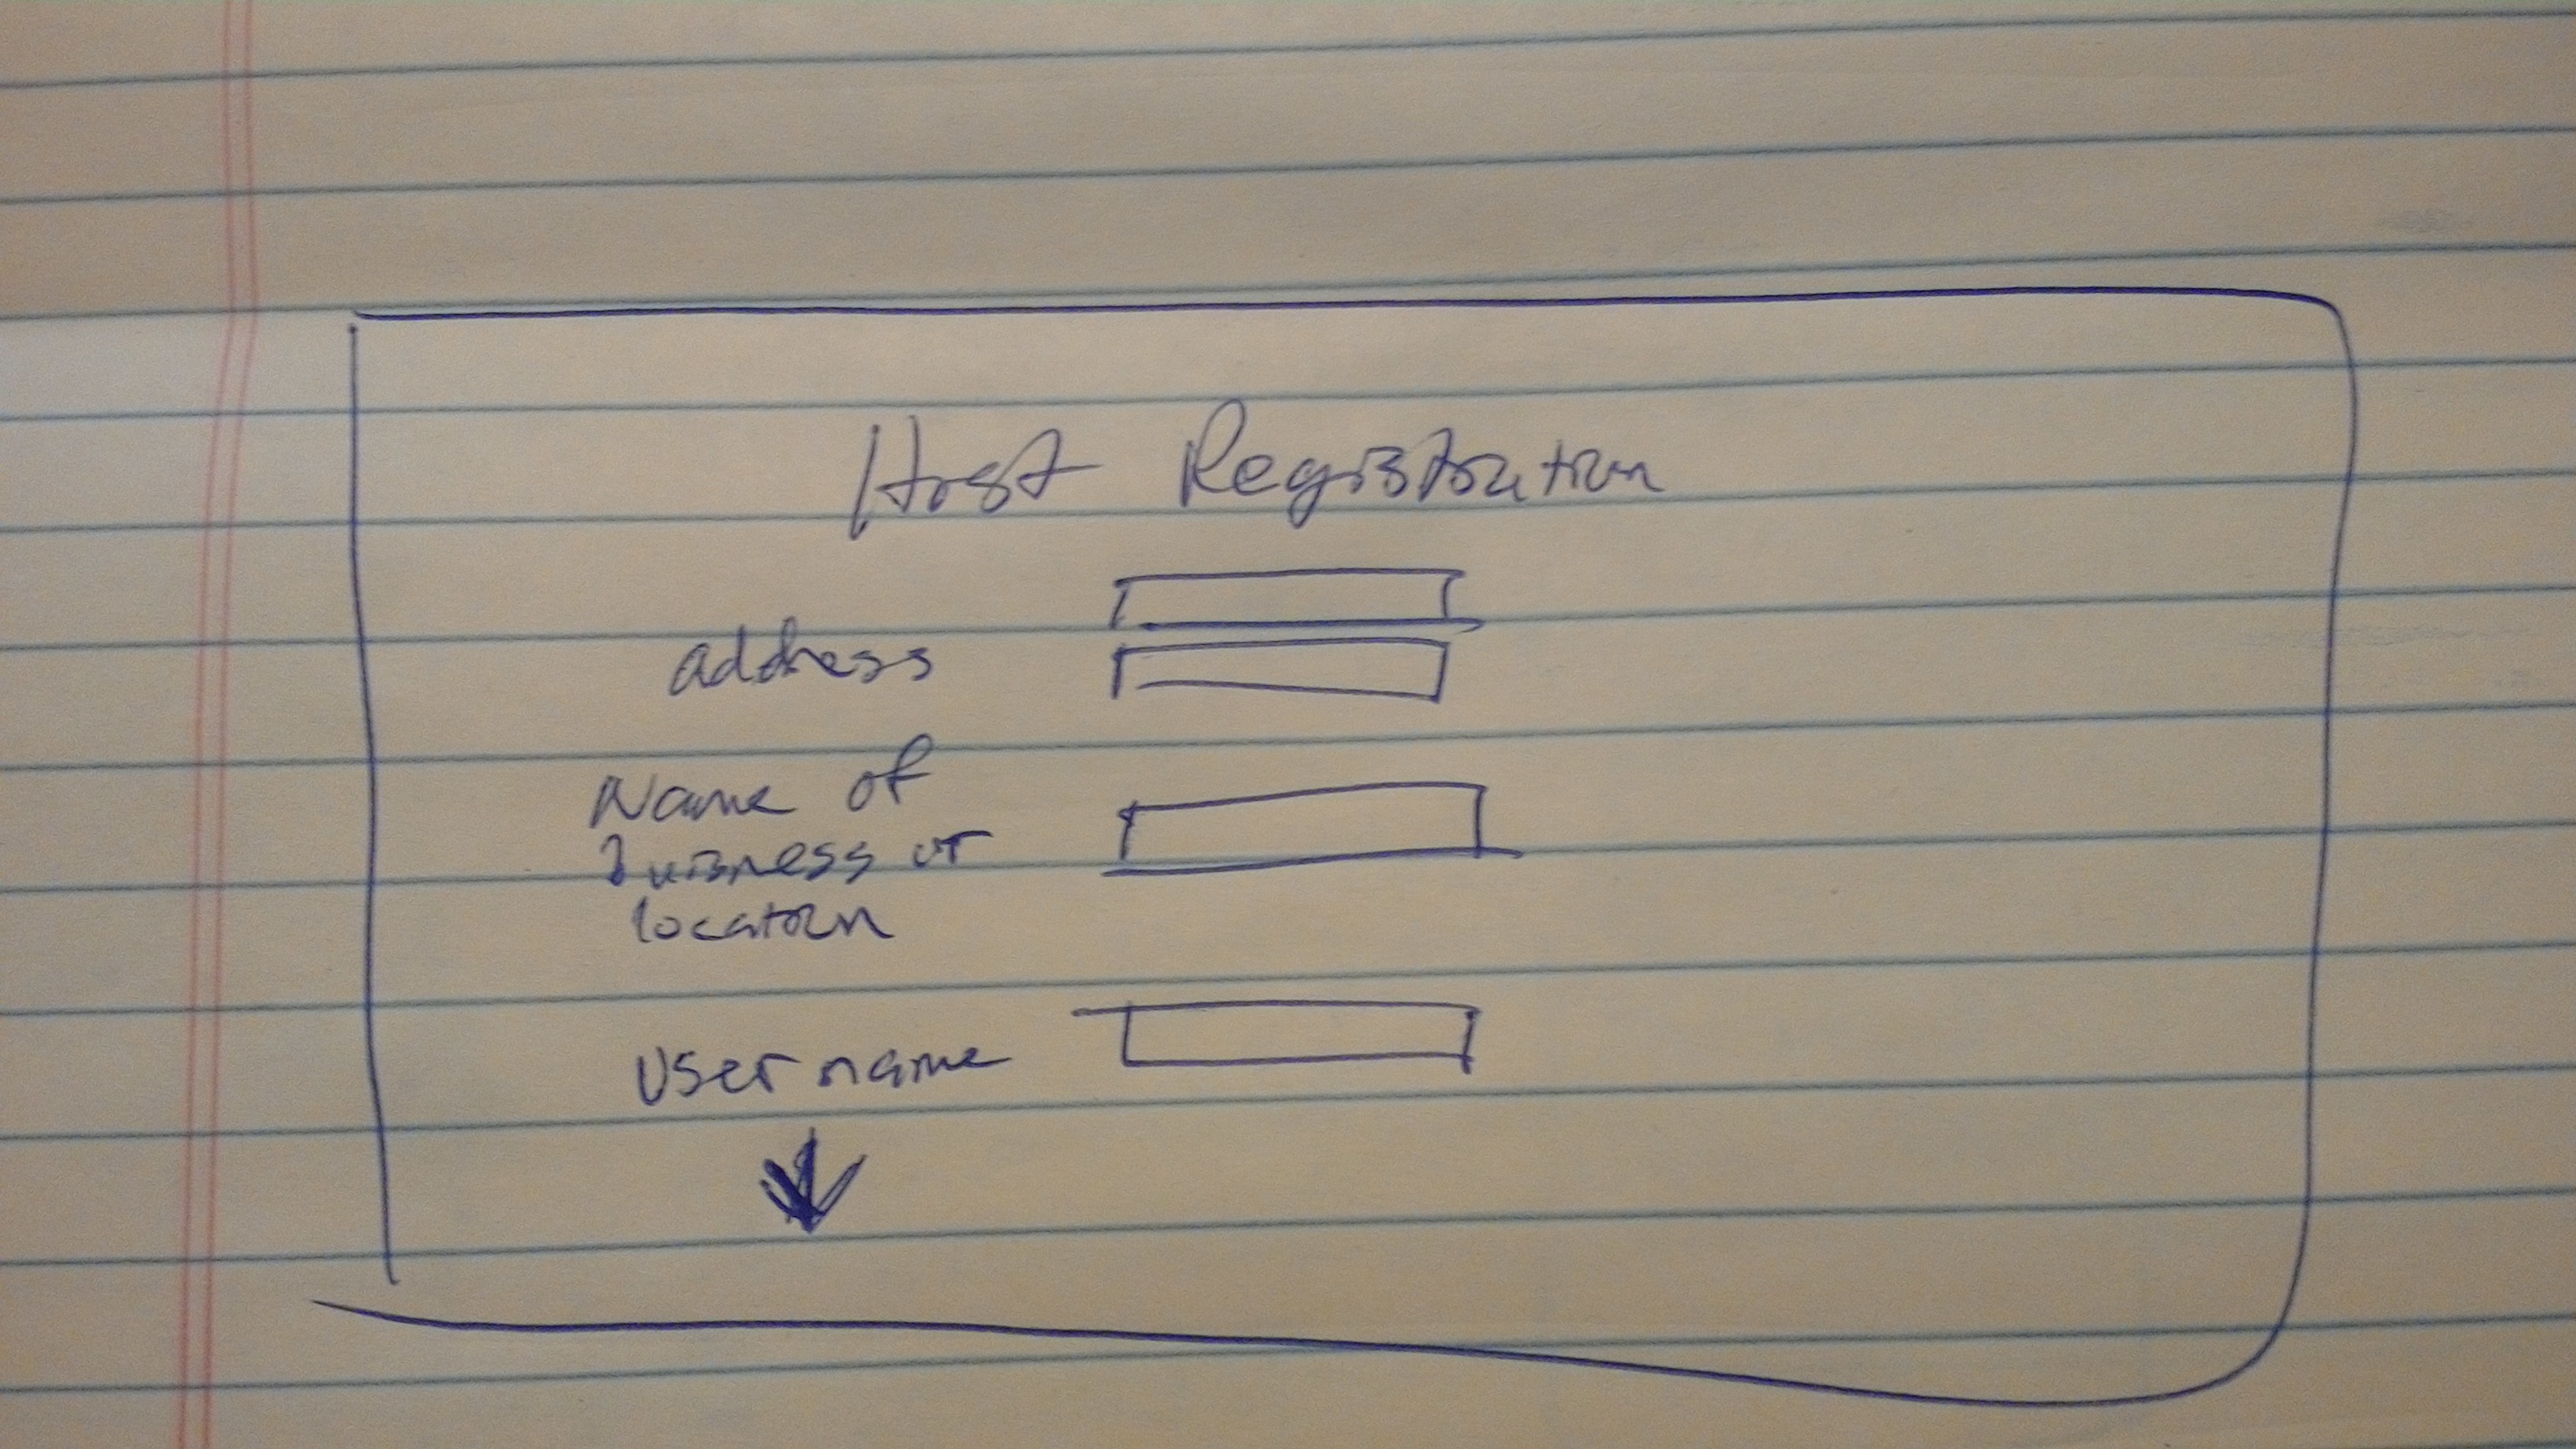 Host Registration
address
Name of
buisness or
location
User name